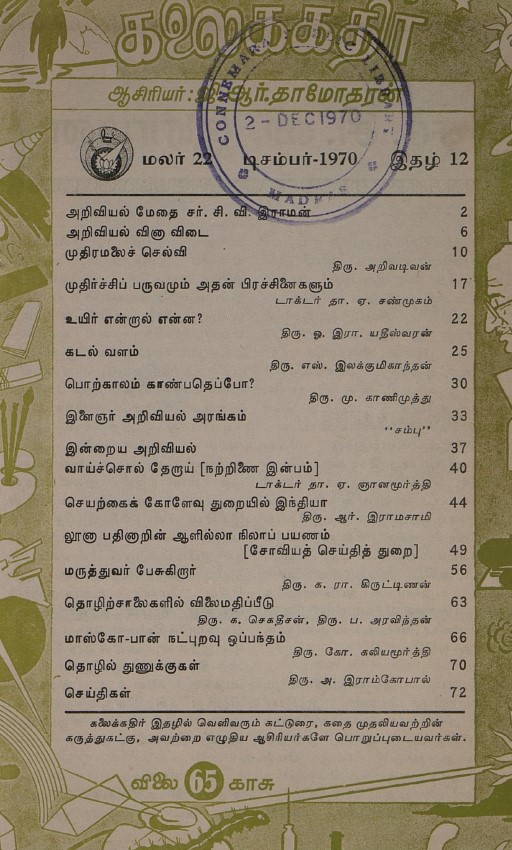 கலைக்கதிர்
ஆசிரியர்: ஜி. ஆர். தாமோதரன்
CONNEMARA PUBLIC LIBRARY
2 - DEC 1970
MADRAS
மலர் 22 டிசம்பர்-1970 இதழ் 12
அறிவியல் மேதை சர். சி. வி. இராமன் 2
அறிவியல் வினா விடை 6
முதிரமலைச் செல்வி 10
திரு. அறிவடிவன்
முதிர்ச்சிப் பருவமும் அதன் பிரச்சினைகளும் 17
டாக்டர் தா. ஏ. சண்முகம்
உயிர் என்றால் என்ன? 22
திரு. ஓ. இரா. யதீஸ்வரன்
கடல் வளம் 25
திரு. எஸ். இலக்குமிகாந்தன்
பொற்காலம் காண்பதெப்போ? 30
திரு. மு. காணிமுத்து
இளைஞர் அறிவியல் அரங்கம் 33
“சம்பு”
இன்றைய அறிவியல் 37
வாய்ச்சொல் தேறாய் [நற்றிணை இன்பம்] 40
டாக்டர் தா. ஏ. ஞானமூர்த்தி
செயற்கைக் கோளேவு துறையில் இந்தியா 44
திரு. ஆர். இராமசாமி
லூனா பதினாறின் ஆளில்லா நிலாப் பயணம்
[சோவியத் செய்தித் துறை] 49
மருத்துவர் பேசுகிறார் 56
திரு. க. ரா. கிருட்டிணன்
தொழிற்சாலைகளில் விலைமதிப்பீடு 63
திரு. க. செகதீசன், திரு. ப. அரவிந்தன்
மாஸ்கோ-பான் நட்புறவு ஒப்பந்தம் 66
திரு. கோ. கலியமூர்த்தி
தொழில் துணுக்குகள் 70
திரு. அ. இராம்கோபால்
செய்திகள் 72
கலைக்கதிர் இதழில் வெளிவரும் கட்டுரை, கதை முதலியவற்றின்
கருத்துகட்கு, அவற்றை எழுதிய ஆசிரியர்களே பொறுப்புடையவர்கள்.
விலை 65 காசு